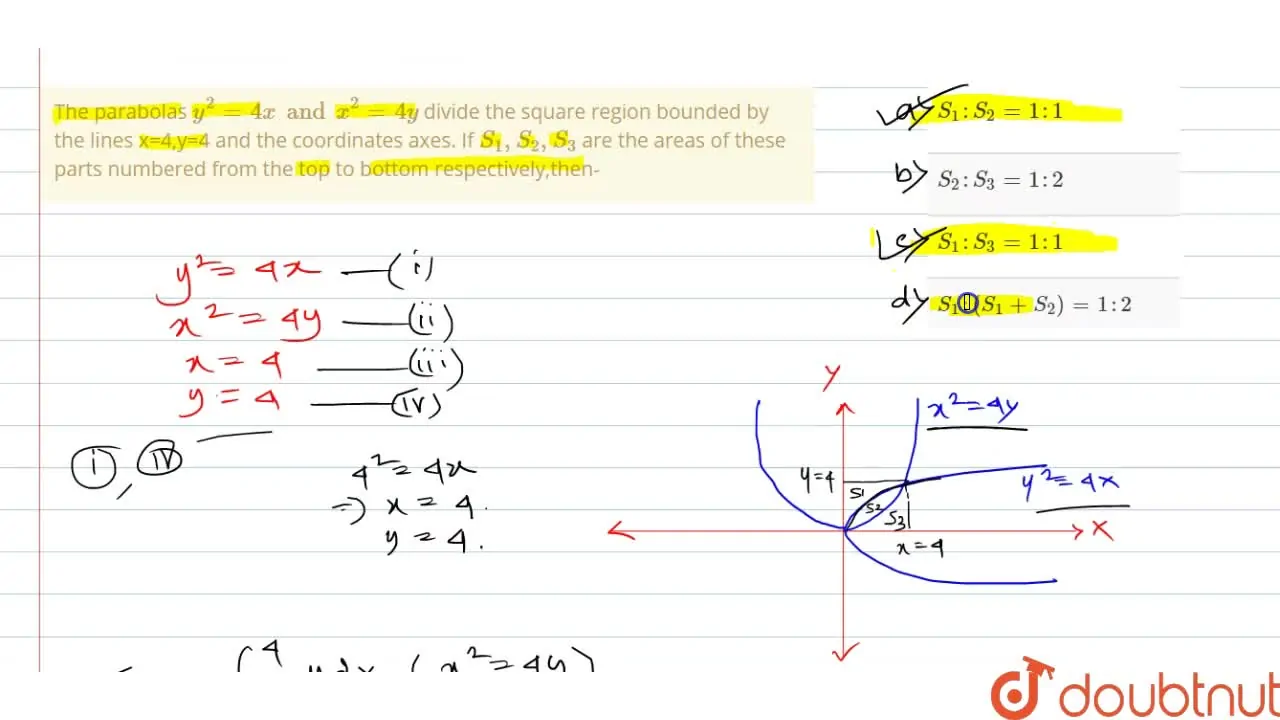 The parabolas y² = 4x and x² = 4y divide the square region bounded by
the lines x=4,y=4 and the coordinates axes. If S₁, S₂, S₃ are the areas of these
parts numbered from the top to bottom respectively,then-
a) S₁ : S₂ = 1 : 1
b) S₂ : S₃ = 1 : 2
c) S₁ : S₃ = 1 : 1
d) S₁ (S₁ + S₂) = 1 : 2
y² = 4x —(i)
x² = 4y —(ii)
x = 4 —(iii)
y = 4 —(iv)
(i), (iv)
4² = 4x
=> x = 4.
y = 4.
Y
x² = 4y
y=4
S1
S2
S3
y² = 4x
x=4
X
∫ 4 y dx (x² = 4y)
doubtnut